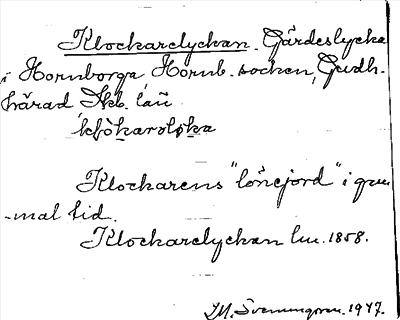 Klockarelyckan. Gärdeslycka
i Hornborga Hornb. socken, Gudh.
härad Skb. län
Klockarens "lönejord" i gam
-mal tid.
Klockarelyckan lm. 1858.
M. Svenungson. 1947.